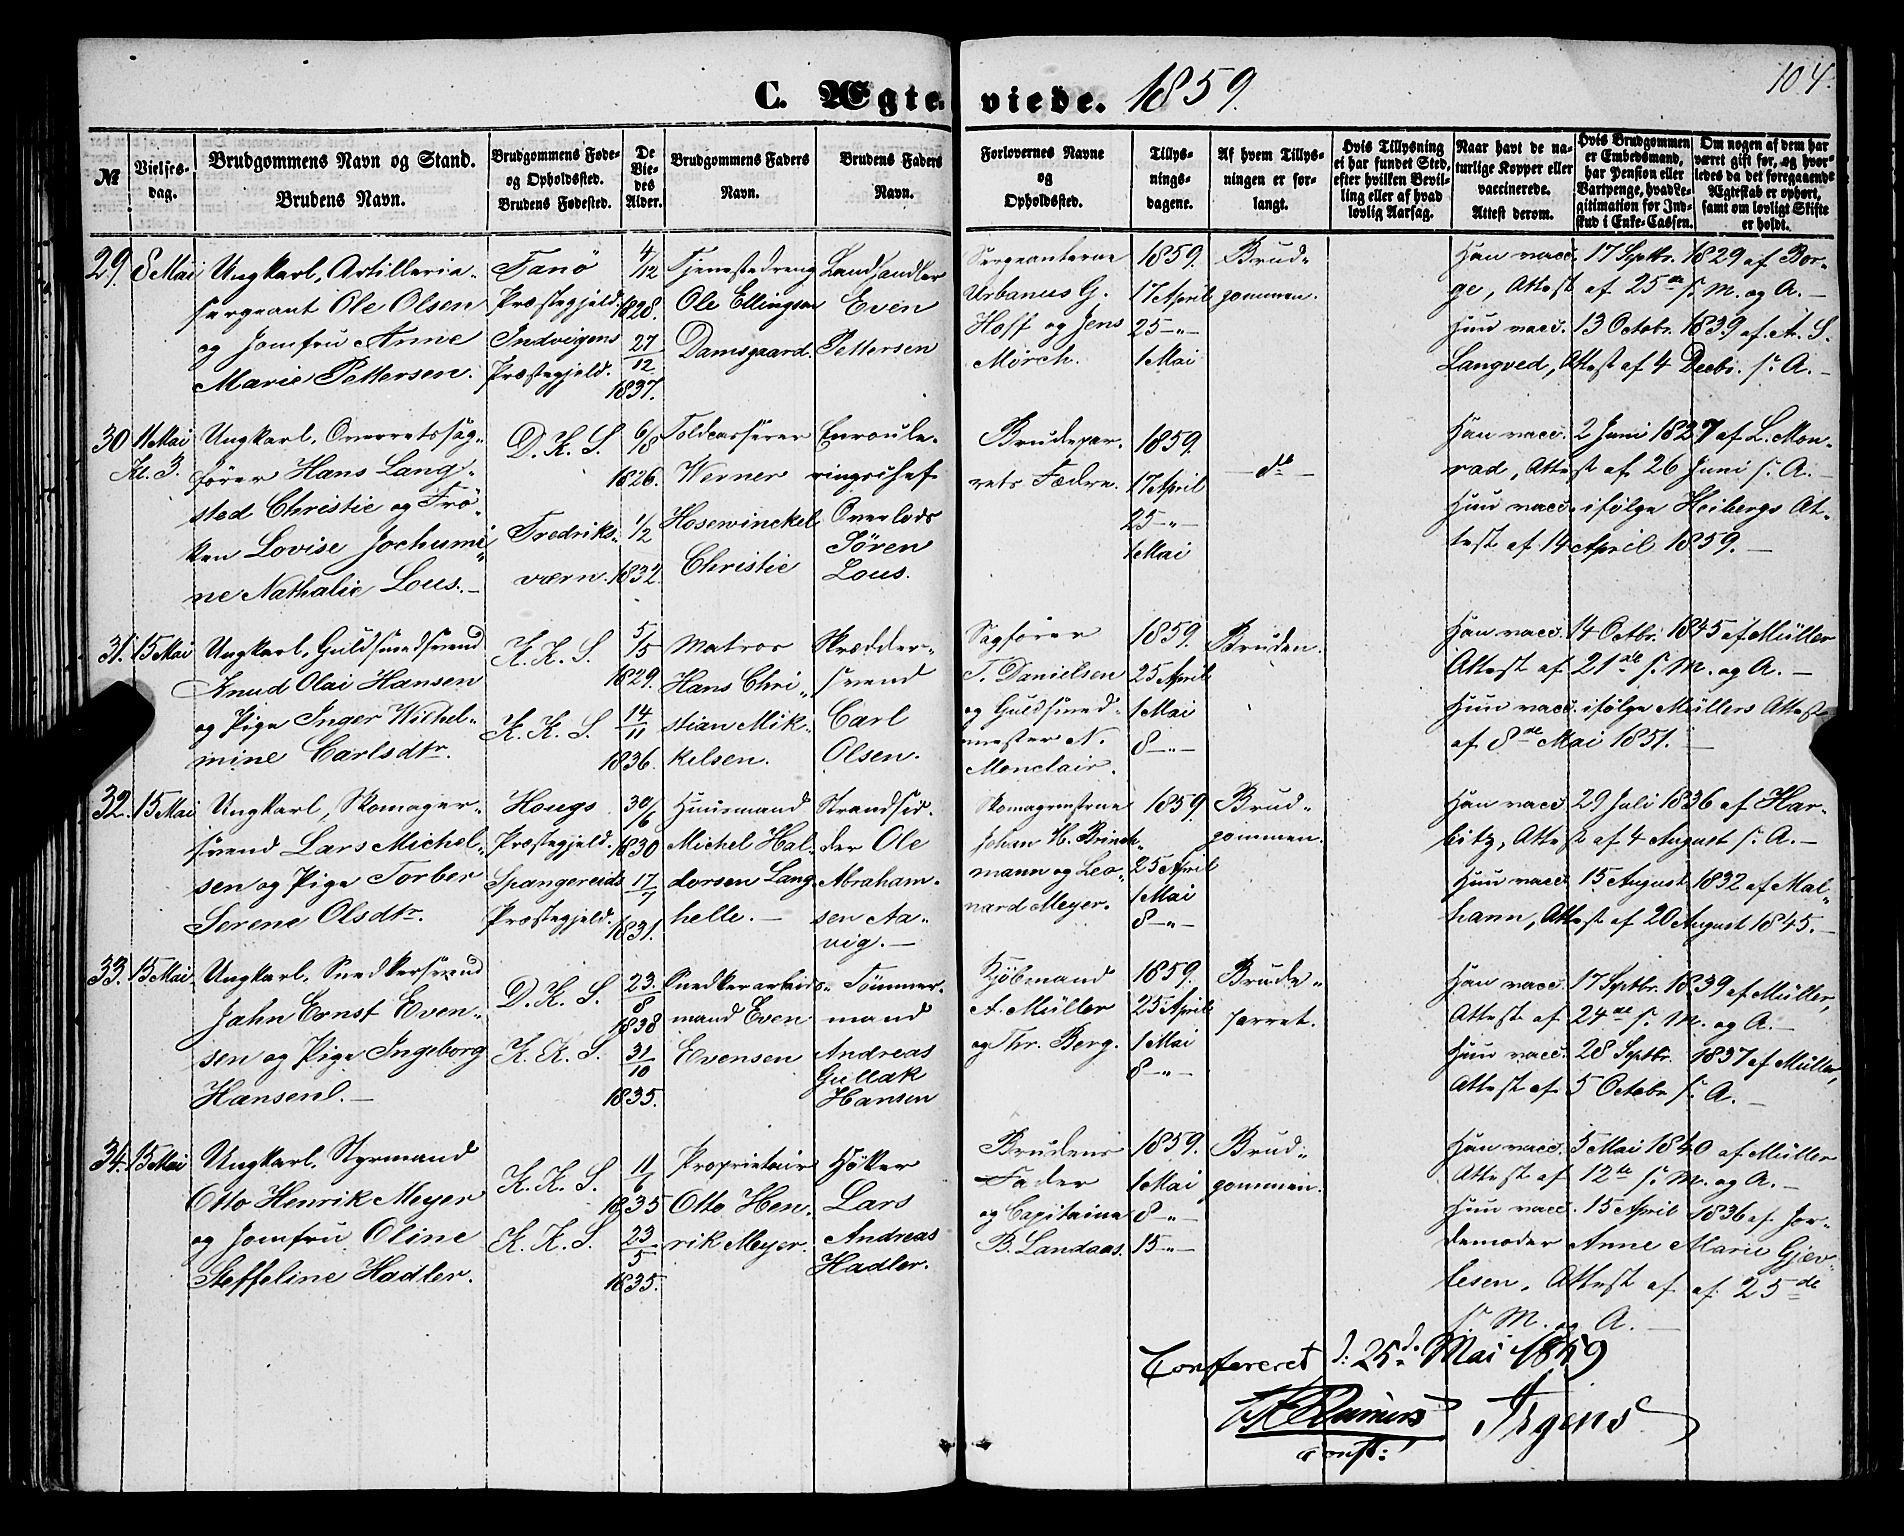 104.
C. Ægteviede. 1859.
№
Vielses-
dag.
Brudgommens Navn og Stand.
Brudens Navn.
Brudgommens Føde-
og Opholdssted.
Brudens Fødested.
De
Vie-
des
Alder.
Brudgommens Faders
Navn.
Brudens Faders
Navn.
Forlovernes Navne
og
Opholdssted.
Tillys-
nings-
dagene.
Af hvem Tillys-
ningen er for-
langt.
Hvis Tillysning
ei har fundet Sted,
efter hvilken Bevil-
ling eller af hvad
lovlig Aarsag.
Naar havt de na-
turlige Kopper eller
vaccinerede.
Attest derom.
Hvis Brudgommen
er Embedsmand,
har Pension eller
Vartpenge, hvad Le-
gitimation for Ind-
skud i Enke-Cassen.
Om nogen af dem har
været gift før, og hvor-
ledes da det foregaaende
Ægteskab er ophørt,
samt om lovligt Skifte
er holdt.
29.
8 Mai
Ungkarl, Artilleria-
sergeant Ole Olsen
og Jomfru Anne
Marie Pettersen.
Fanö
Præstegjeld.
Indvigens
Præstegjeld.
4/12
1828.
27/12
1837.
Tjenestedreng
Ole Ellingsen
Damsgaard.
Landhandler
Even
Pettersen
Sergeanterne
Urbanus G.
Hoff og Jens
Mörch.
1859.
17 April
25 -"-
1 Mai
Brud-
gommen.
Han vacc. 17 Septbr. 1829 af Bor-
ge, Attest af 25de s. M. og A. —
Hun vacc. 13 Octobr. 1839 af A. S.
Langved, Attest af 4 Decbr. s. A. —
30
11 Mai
Kl. 3.
Ungkarl, Overretssag-
förer Hans Lang-
sted Christie og Frö-
ken Lovise Jochumi-
ne Nathalie Lous. —
D. K. S.
Fredriks-
værn.
6/18
1826.
1/2
1832.
Toldcasserer
Werner
Hosewinckel
Christie
Enroule-
ringschef
Overlods
Sören
Lous.
Brudepar-
rets Fædre.
1859.
17 April
25 -"-
1 Mai
— do —
Han vacc. 2 Juni 1827 af L. Mon-
rad, Attest af 26 Juni s. A. —
Hun vacc. ifölge Heibergs At-
test af 14 April 1859. —
31.
15 Mai
Ungkarl, Guldsmedsvend
Knud Olai Hansen
og Pige Inger Wilhel-
mine Carlsdtr.
K. K. S.
K. K. S
5/5
1829.
14/11
1836.
Matros
Hans Chri-
stian Mik-
kelsen.
Skrædder-
svend
Carl
Olsen.
Sagförer
T. Danielsen
og Guldsmed-
mester N.
Monclair.
1859.
25 April
1 Mai
8 -"-
Bruden.
Han vacc. 14 Octbr. 1845 af Müller
Attest af 21de s. M. og A. —
Hun vacc. ifölge Müllers Attest
af 8de Mai 1851. —
32.
15 Mai
Ungkarl, Skomager-
svend Lars Michel-
sen og Pige Torber
Serene Olsdtr.
Hougs
Præstegjeld.
Spangereids
Præstegjeld.
30/6
1830
17/7
1831.
Huusmand
Michel Hal-
dorsen Lang-
helle. —
Strandsid-
der Ole
Abraham-
sen Aa-
vig. —
Skomagrestrene
Johan H. Brinch-
mann og Leo-
nard Meyer.
1859.
25 April
1 Mai
8 -"-
Brud-
gommen.
Han vacc. 29 Juli 1836 af Har-
bitz, Attest af 4 August s. A. —
Hun vacc. 15 August 1832 af Mal-
hann, Attest af 20 August 1845. —
33.
15 Mai
Ungkarl, Snedkersvend
Jahn Ernst Even-
sen og Pige Ingeborg
Hansen. —
D. K. S.
K. K. S.
23/8
1838
31/10
1835.
Snedkerarbeids-
mand Even
Evensen
Tömmer-
mand
Andreas
Gullak
Hansen
Kjöbmand
A. Müller
og Thr. Berg.
1859.
25 April
1 Mai
8 -"-
Brude-
parret.
Han vacc. 17 Septbr. 1839 af Müller,
Attest af 24de s. M. og A. —
Hun vacc. 28 Septbr. 1837 af Müller,
Attest af 5 Octobr. s. A. —
34.
15 Mai
Ungkarl, Styrmand
Otto Henrik Meyer
og Jomfru Oline
Steffeline Hadler.
K. K. S.
K. K. S.
11/6
1835
23/5
1835.
Proprietair
Otto Hen-
rik Meyer.
Höker
Lars
Andreas
Hadler.
Brudens
Fader
og Capitaine
B. Landaas.
1859.
1 Mai
8 -"-
15 -"-
Brud-
gommen.
Han vacc. 5 Mai 1840 af Müller
Attest af 12te s. M. og A. —
Hun vacc. 15 April 1836 af Jor-
demoder Anne Marie Gjev-
lesen, Attest af af 25de
s. M. og A. —
Confereret d: 25d. Mai 1859
Irgens
const: